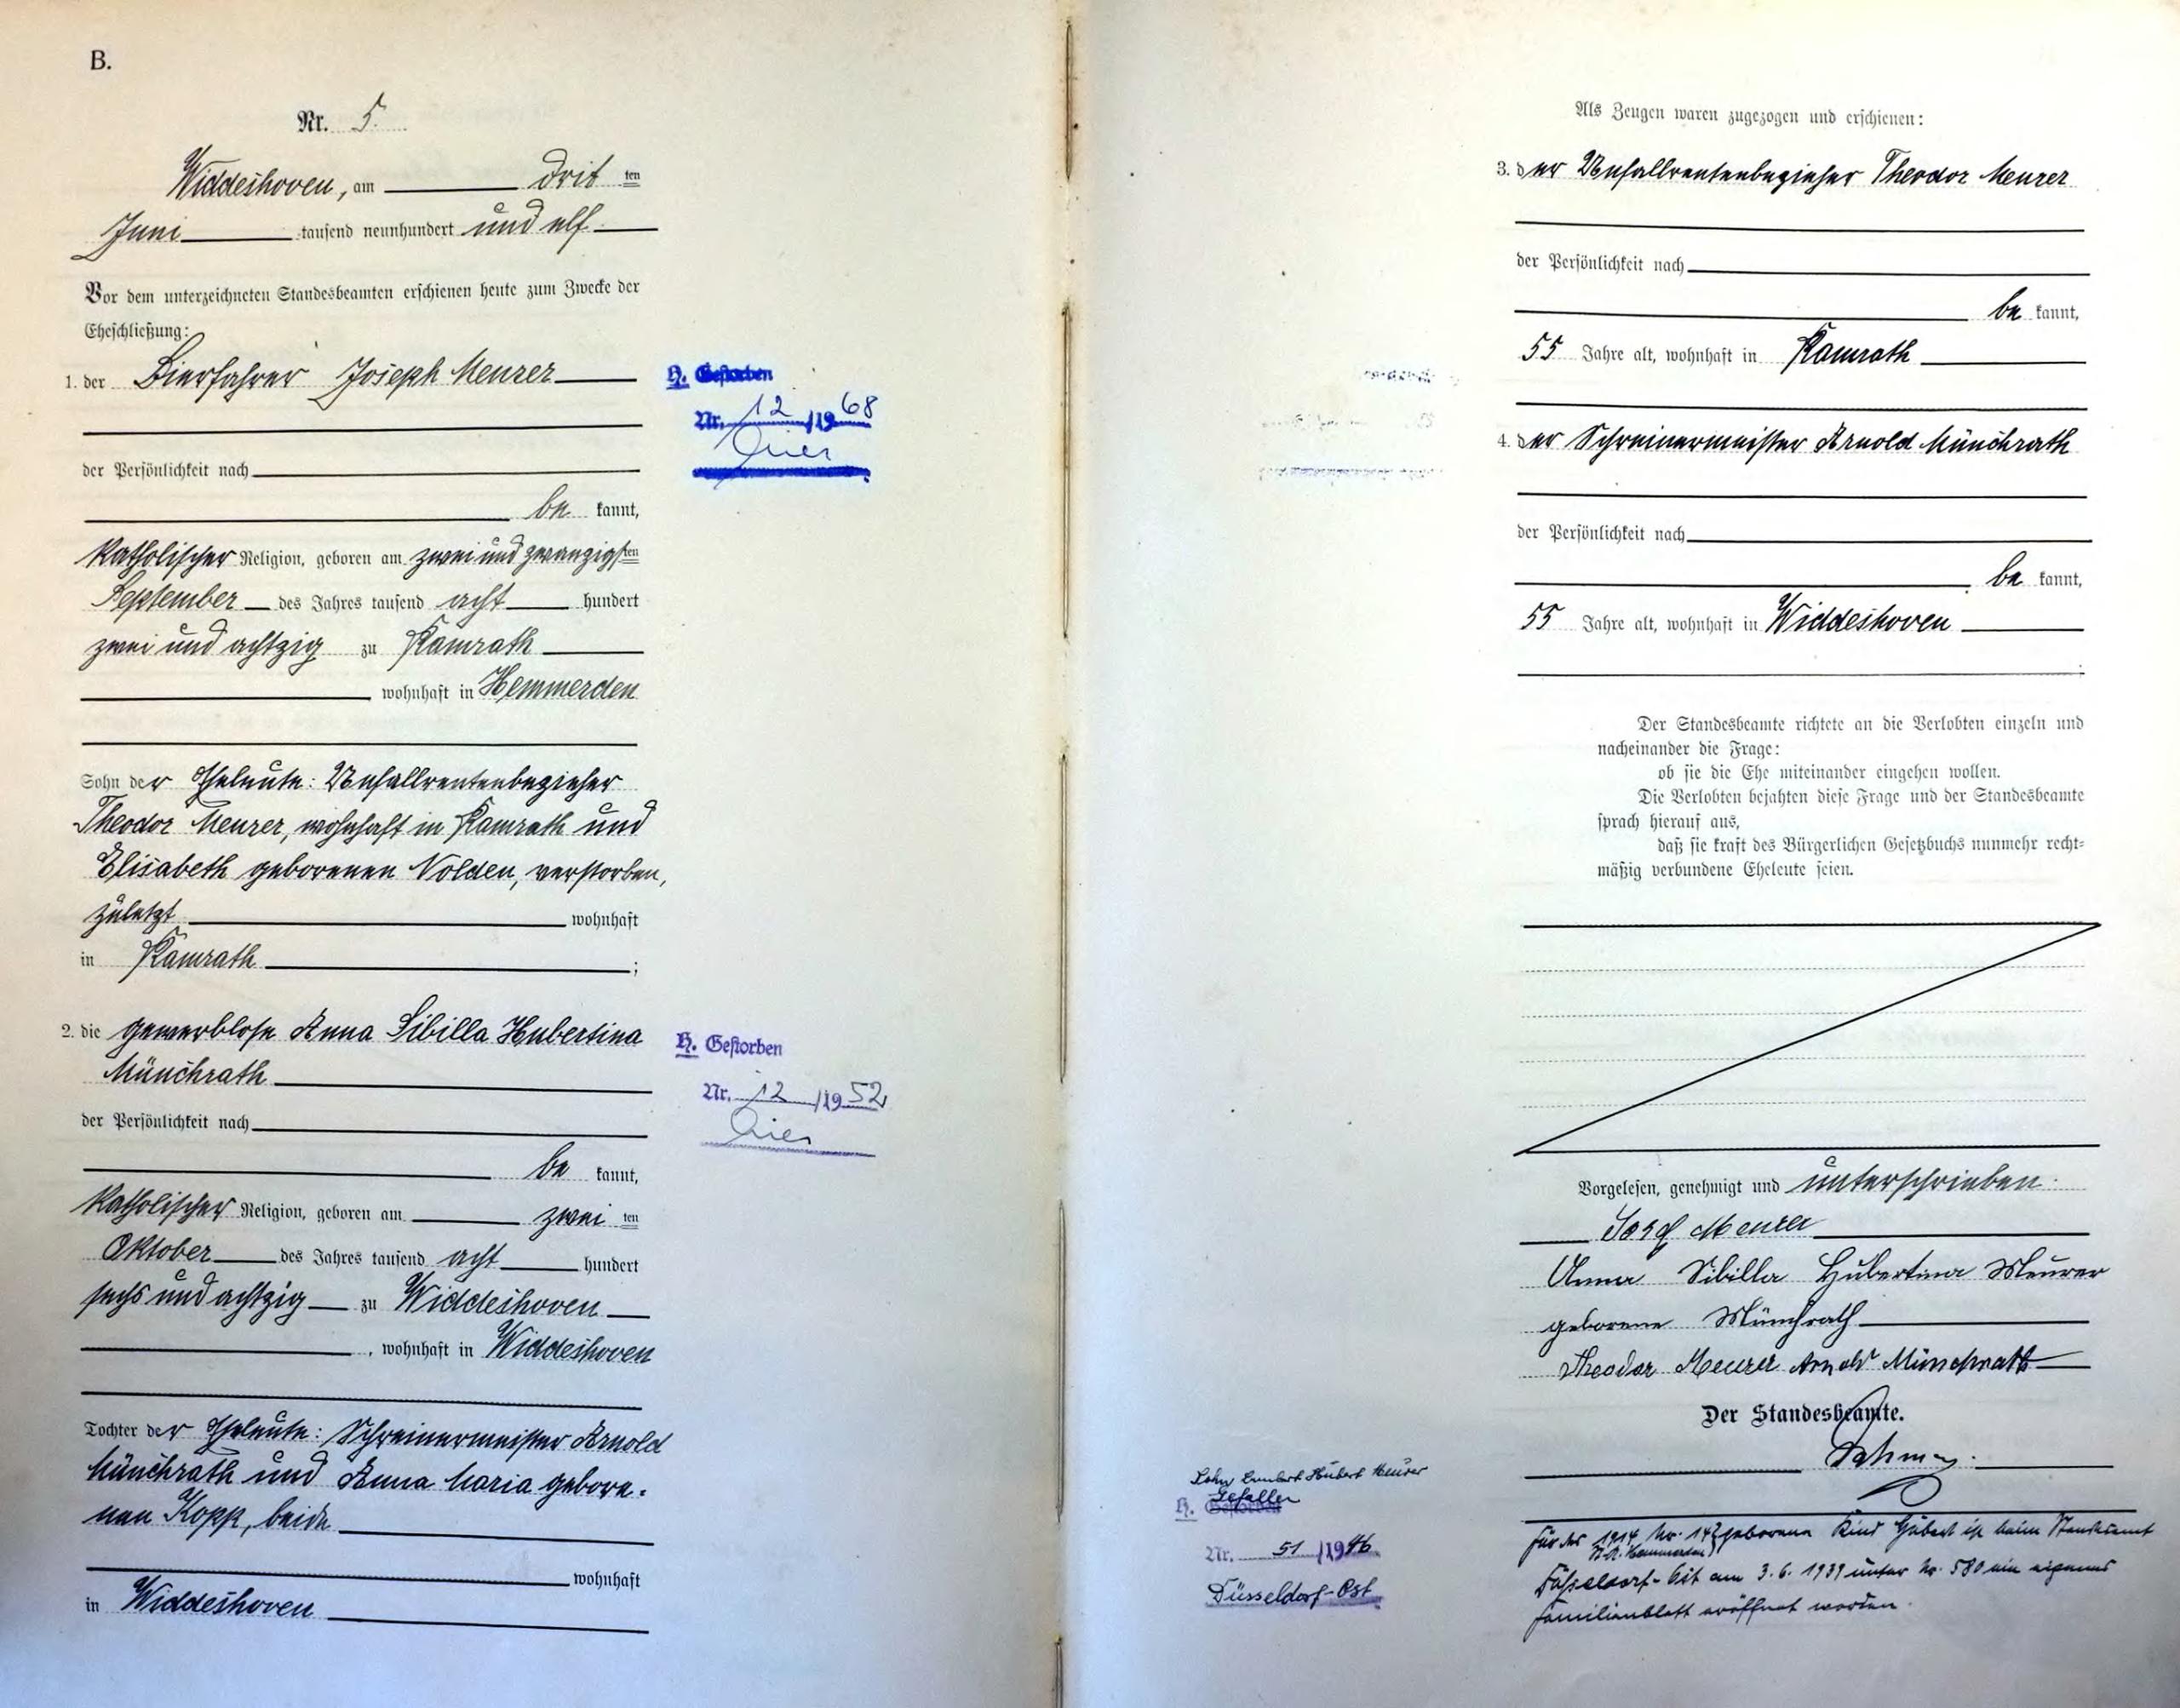 B.
Nr. 5.
Widdeshoven, am drit ten
Juni tausend neunhundert und elf
Vor dem unterzeichneten Standesbeamten erschienen heute zum Zwecke der
Eheschließung:
1. der Bierfahrer Joseph Meurer
der Persönlichkeit nach
be kannt,
katholischer Religion, geboren am zwei und zwanzigsten
September des Jahres tausend acht hundert
zwei und achtzig zu Ramrath
wohnhaft in Hemmerden
Sohn der Eheleute: Unfallrentenbezieher
Theodor Meurer, wohnhaft in Ramrath und
Elisabeth geborenen Nolden, verstorben,
zuletzt wohnhaft
in Ramrath ;
2. die gewerblose Anna Sibilla Hubertina
Münchrath
der Persönlichkeit nach
be kannt,
katholischer Religion, geboren am zwei ten
Oktober des Jahres tausend acht hundert
sechs und achtzig zu Widdeshoven
, wohnhaft in Widdeshoven
Tochter der Eheleute: Schreinermeister Arnold
Münchrath und Anna Maria gebore-
nen Kopp, beide
wohnhaft
in Widdeshoven
H. Gestorben
Nr. 12 /1968
H. Gestorben
Nr. 12 /1952
Als Zeugen waren zugezogen und erschienen:
3. der Unfallrentenbezieher Theodor Meurer
der Persönlichkeit nach
be kannt,
55 Jahre alt, wohnhaft in Ramrath
4. der Schreinermeister Arnold Münchrath
der Persönlichkeit nach
be kannt,
55 Jahre alt, wohnhaft in Widdeshoven
Der Standesbeamte richtete an die Verlobten einzeln und
nacheinander die Frage:
ob sie die Ehe miteinander eingehen wollen.
Die Verlobten bejahten diese Frage und der Standesbeamte
sprach hierauf aus,
daß sie kraft des Bürgerlichen Gesetzbuchs nunmehr recht-
mäßig verbundene Eheleute seien.
Vorgelesen, genehmigt und unterschrieben:
Josef Meurer
Anna Sibilla Hubertina Meurer
geborene Münchrath
Theodor Meurer Arnold Münchrath
Der Standesbeamte.
Sohn Hubert Meurer
Gefallen
H. Gestorben
Nr. 51 /1946
Düsseldorf-Ost
Für das 1914 Nr. 147 geborene Kind Hubert ist beim Standesamt
Düsseldorf-Ost am 3.6.1939 unter Nr. 580 ein eigenes
Familienblatt eröffnet worden.